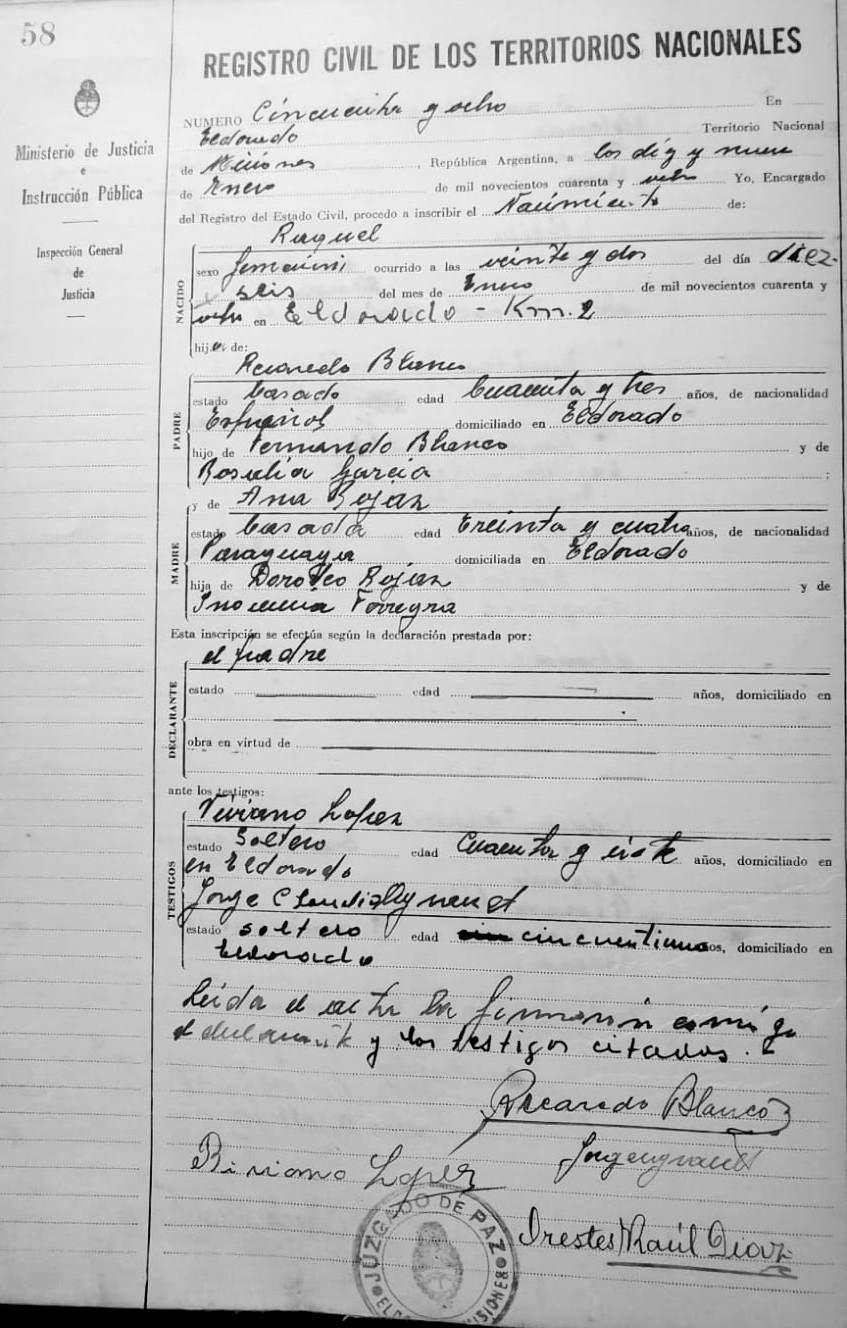 58
REGISTRO CIVIL DE LOS TERRITORIOS NACIONALES
Ministerio de Justicia
e
Instrucción Pública
Inspección General
de
Justicia
NUMERO Cincuenta y ocho En
Eldorado Territorio Nacional
de Misiones, República Argentina, a los diez y nueve
de Enero de mil novecientos cuarenta y ocho Yo, Encargado
del Registro del Estado Civil, procedo a inscribir el Nacimiento de:
NACIDO
Raquel
sexo femenino, ocurrido a las veinte y dos del día diez
seis del mes de Enero de mil novecientos cuarenta y
ocho en Eldorado - Km. 2
hija de:
PADRE
Recaredo Blanco
estado Casado edad Cuarenta y tres años, de nacionalidad
Español domiciliado en Eldorado
hijo de Fernando Blanco y de
Rosalia Garcia ;
MADRE
y de Ana Rojas
estado Casada edad treinta y cuatro años, de nacionalidad
Paraguaya domiciliada en Eldorado
hija de Doroteo Rojas y de
Inocencia
Esta inscripción se efectúa según la declaración prestada por:
el padre
DECLARANTE
estado edad años, domiciliado en
obra en virtud de
ante los testigos:
TESTIGOS
Viviano Lopez
estado Soltero edad Cuarenta y siete años, domiciliado en
en Eldorado
Jorge
estado soltero edad años, domiciliado en
Eldorado
Leida el acta la firmarón conmigo
el declarante y los testigos citados.
Recaredo Blanco
Biviano Lopez
Orestes Raúl Diaz
JUZGADO DE PAZ